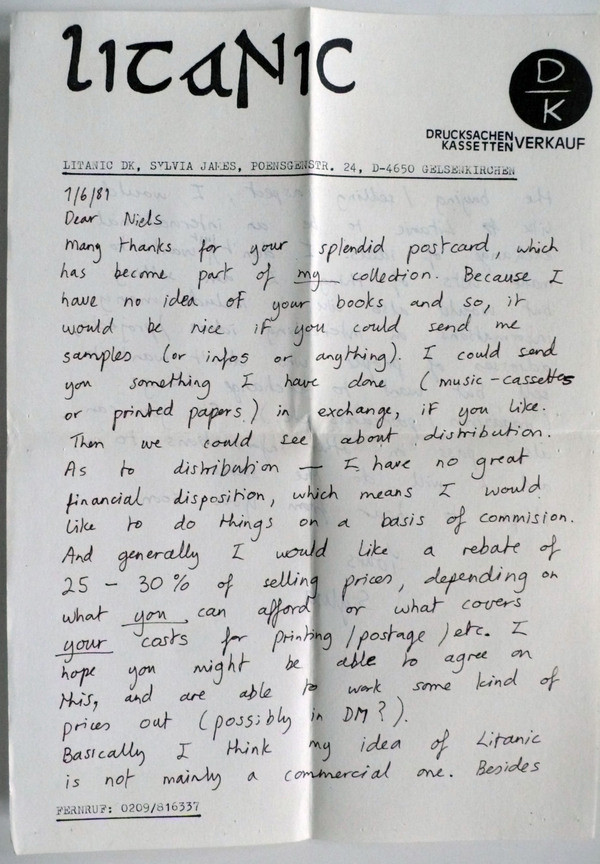 LITANIC
D
K
DRUCKSACHEN
KASSETTENVERKAUF
LITANIC DK, SYLVIA JAMES, POENSGENSTR. 24, D-4650 GELSENKIRCHEN
1/6/81
Dear Niels
many thanks for your splendid postcard, which
has become part of my collection. Because I
have no idea of your books and so, it
would be nice if you could send me
samples (or infos or anything). I could send
you something I have done (music-cassettes
or printed papers) in exchange, if you like.
Then we could see about distribution.
As to distribution — I have no great
financial disposition, which means I would
like to do things on a basis of commision.
And generally I would like a rebate of
25 - 30% of selling prices, depending on
what you can afford or what covers
your costs for printing /postage /etc. I
hope you might be able to agree on
this, and are able to work some kind of
prices out (possibly in DM?).
Basically I think my idea of Litanic
is not mainly a commercial one. Besides
FERNRUF: 0209/816337